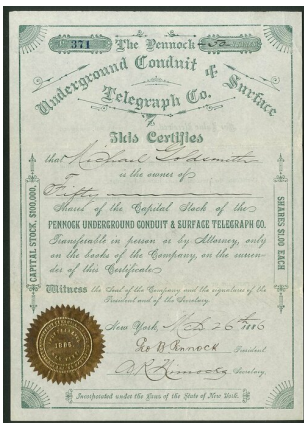 371
The Pennock
50
Underground Conduit & Surface
Telegraph Co.
This Certifies
that Michael Goldsmith
is the owner of
Fifty
Shares of the Capital Stock of the
PENNOCK UNDERGROUND CONDUIT & SURFACE TELEGRAPH CO.
Transferable in person or by Attorney, only
on the books of the Company, on the surren-
der of this Certificate
Witness the Seal of the Company and the signatures of the
President and of the Secretary.
New York 26th 1886
Geo B Pennock President
Secretary.
Incorporated under the Laws of the State of New York.
CAPITAL STOCK, $100,000.
SHARES $1.00 EACH